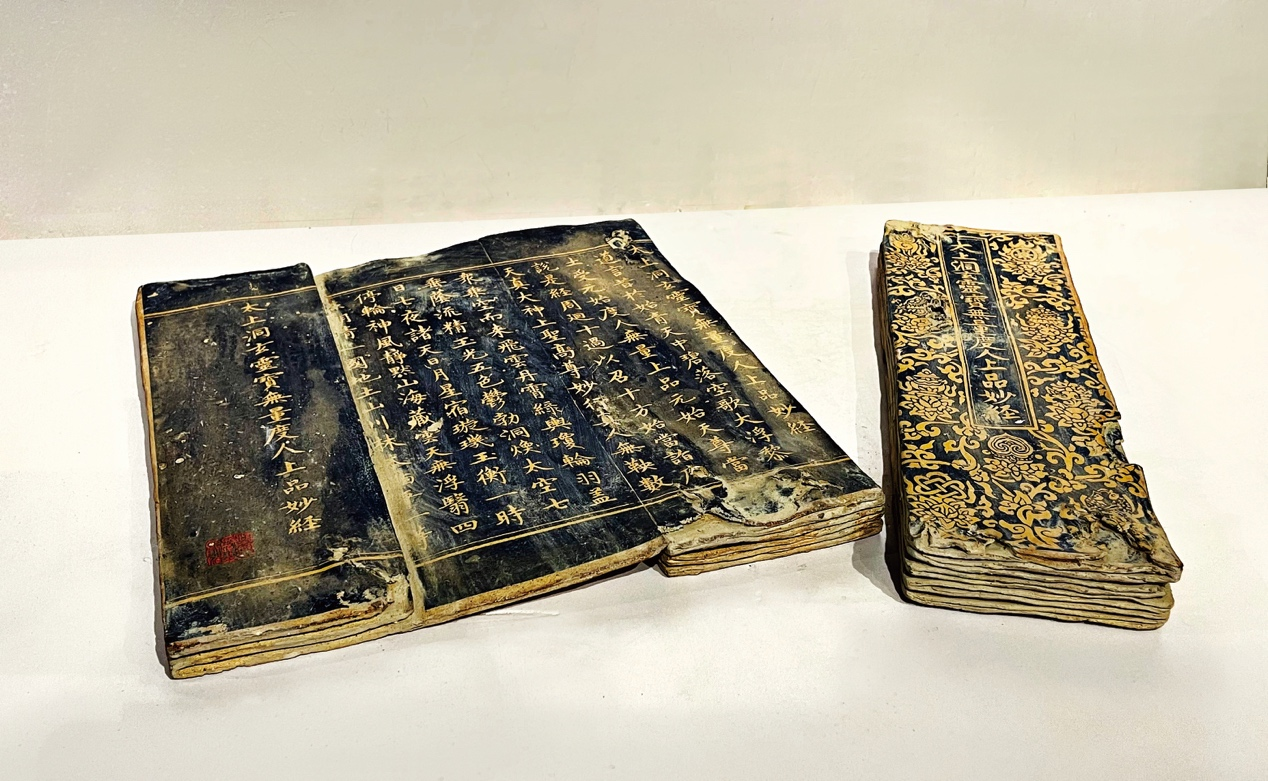 太上洞玄靈寶無量度人上品妙経
道言昔於始青天中碧落空歌大浮黎
土受元始度人無量上品元始天尊當
說是経周迴十過以召十方始當詣
天真大神上聖高尊妙行真人無鞅數
衆乘空而來飛雲丹霄綠輿瓊輪羽蓋
垂蔭流精玉光五色鬱勃洞煥太空七
日七夜諸天日月星宿璇璣玉衡一時
停輪神風靜默山海藏雲天無浮翳四
朗清一國地土山川林木
太上洞玄靈寶無量度人上品妙経
太上洞玄靈寶無量度人上品妙経